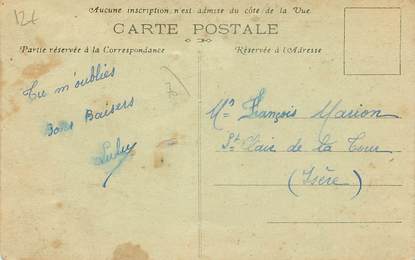 12€
Aucune inscription n'est admise du côté de la Vue
CARTE POSTALE
Partie réservée à la Correspondance
Réservée à l'Adresse
Tu m'oublies
Bons Baisers
Lulu
Mr François Marion
St Clair de la Tour
(Isère)